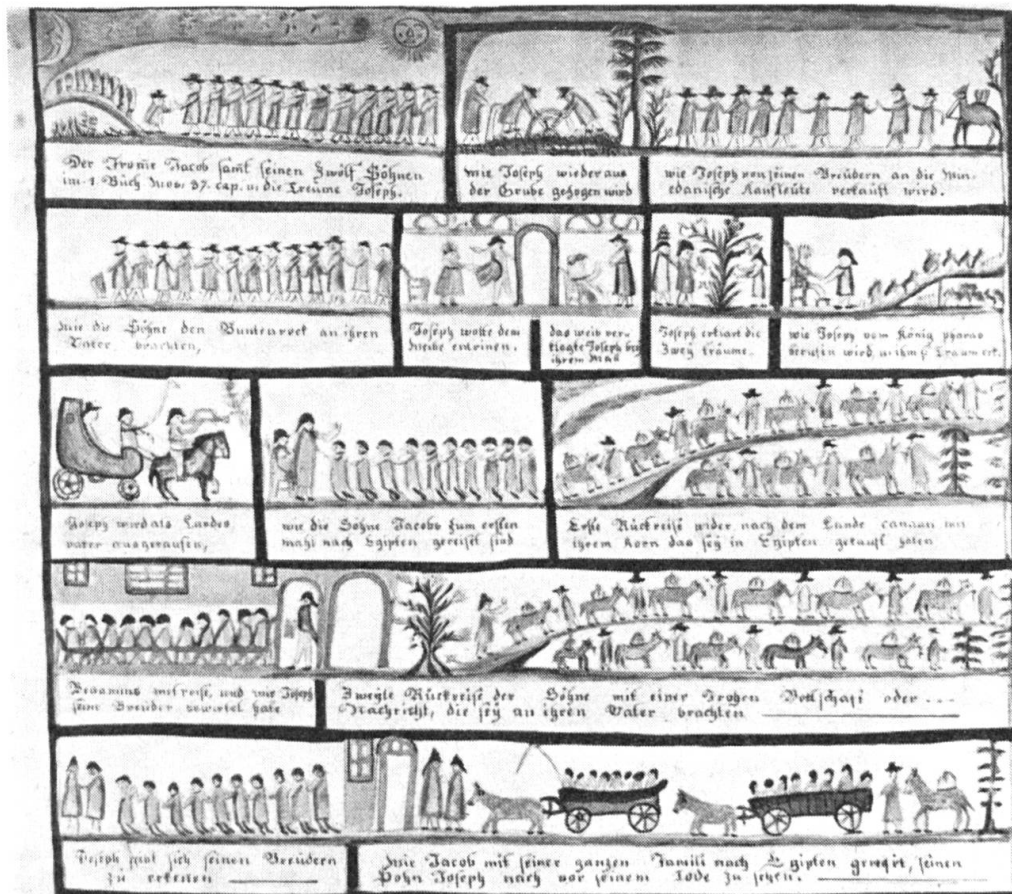 Der Frome Jacob samt seinen Zwölf Söhnen
im 1. Buch Mos. 37. cap. u: die Treume Joseph.
wie Joseph wieder aus
der Grube gezogen wird
wie Joseph von seinen Breüdern an die
Kaufleüte verkauft wird.
wie die Söhne den Buntenrock an ihren
Vater, brachten,
Joseph wolte dem
Weibe entrinen.
das weib ver-
klagte Joseph bey
ihrem Mañ
Joseph erklärt die
Zwey träume.
wie Joseph vom König pharao
berufen wird,
Joseph wird als Landes
vater ausgerufen,
wie die Söhne Jacobs zum ersten
mahl nach Egipten gereisst sind
Erste Rückreise wider, nach dem Lande canaan mit
ihrem Korn das sey in Egipten gekauft haben
und wie Joseph
seine Breüder bewirtet habe
Zweyte Rückreise der Söhne mit einer Frohen Bottschaft oder - - -
Nachricht, die sey an ihren Vater brachten
Joseph gibt sich seinen Breüdern
zu erkenen
Wie Jacob mit seiner ganzen Famili nach Egipten seinen
Sohn Joseph noch vor seinem Tode zu sehen.